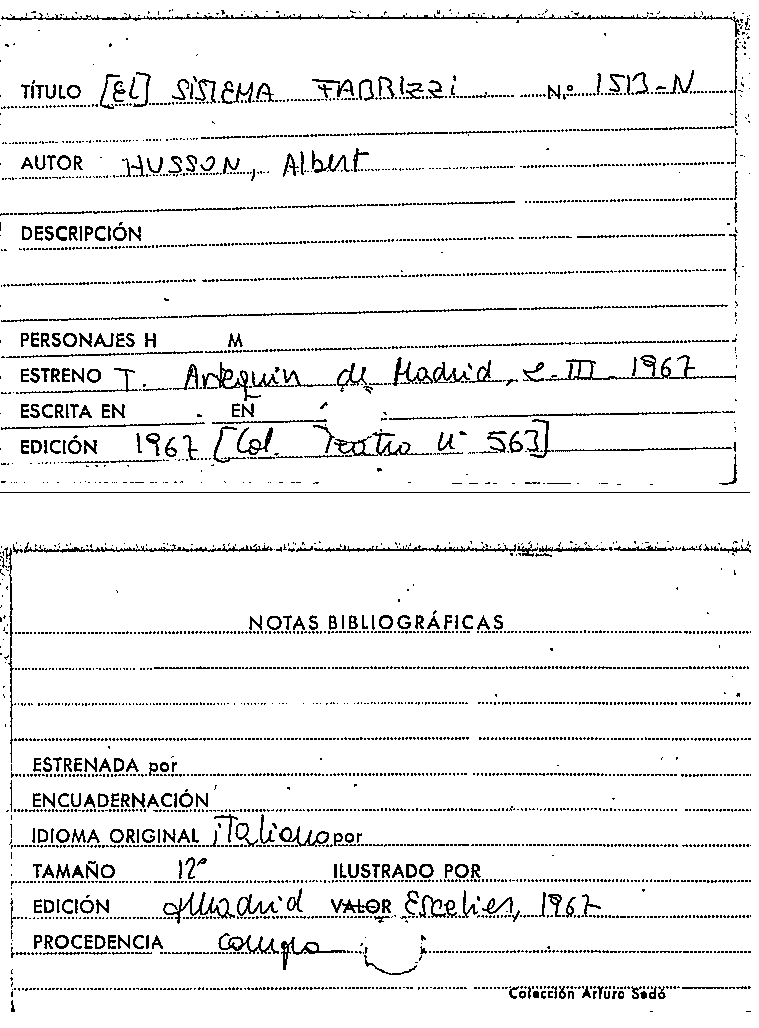 TÍTULO [EL] SISTEMA FABRIZZI N.º 1513-N
AUTOR HUSSON, Albert
DESCRIPCIÓN
PERSONAJES H M
ESTRENO T. Arlequin de Madrid, 2-III-1967
ESCRITA EN EN
EDICIÓN 1967 [Col. Teatro nº 563]
NOTAS BIBLIOGRÁFICAS
ESTRENADA por
ENCUADERNACIÓN
IDIOMA ORIGINAL italiano por
TAMAÑO 12º ILUSTRADO POR
EDICIÓN Madrid VALOR Escelier, 1967
PROCEDENCIA compra
Colección Arturo Sedó